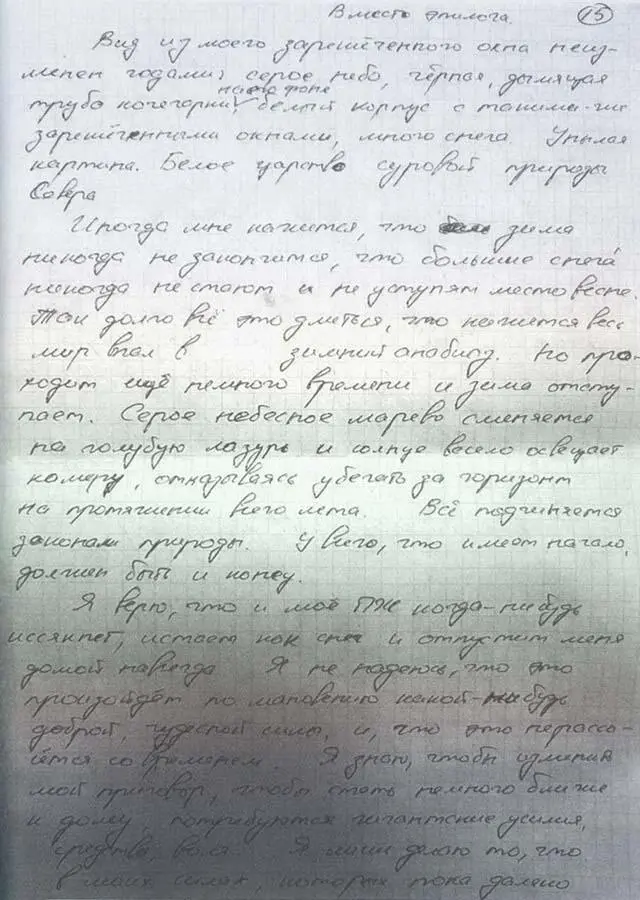 Вместо эпилога.
15
Вид из моего зарешёченного окна неиз-
менен годами: серое небо, чёрная, дымящая
труба кочегарки,
на её фоне
белый корпус с такими-же
зарешёченными окнами, много снега. Унылая
картина. Белое царство суровой природы
Севера
Иногда мне кажется, что зима
никогда не закончится, что большие снега
никогда не стают и не уступят место весне.
Так долго всё это длиться, что кажется весь
мир впал в зимний анабиоз. Но про-
ходит ещё немного времени и зима отсту-
пает. Серое небесное марево сменяется
на голубую лазурь и солнце весело освещает
камеру, отказываясь убегать за горизонт
на протяжении всего лета. Всё подчиняется
законам природы. У всего, что имеет начало,
должен быть и конец.
Я верю, что и моё ПЖ когда-нибудь
иссякнет, истает как снег и отпустит меня
домой навсегда Я не надеюсь, что это
произойдёт по мановению какой-нибудь
доброй, чудесной силы, и, что это нерассо-
ётся со временем. Я знаю, чтобы изменить
мой приговор, чтобы стать немного ближе
к дому потребуются гигантские усилия,
средства, воля. Я лишь делаю то, что
в моих силах, которых пока далеко